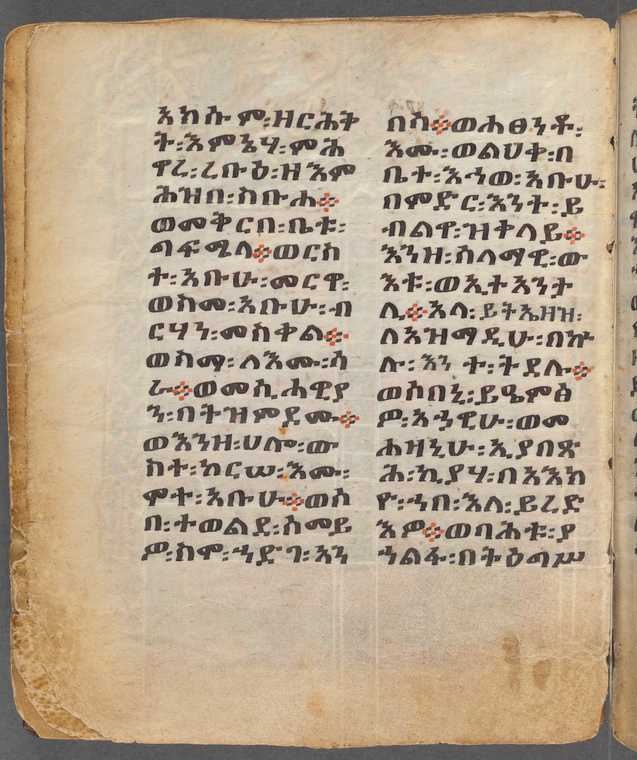 አከሱም፡ዘርሕቅ
ት፡እምኔሃ፡ምሕ
ዋረ፡ረቡዕ፡ዘእም
ሕዝበ፡ስቡሐ፨
ወመቅርበ፡ቤቱ፡
ጣፍሜላ፨ወርስ
ተ፡አቡሁ፡መርዋ፡
ወስመ፡አቡሁ፡ብ
ርሃን፡መስቀል፨
ወስማ፡ለእሙ፡ሳ
ራ፨ወመሲሓዊያ
ን፡በትዝምደሙ፨
ወእንዘ፡ሀሎ፡ው
ስተ፡ከርሠ፡እሙ፡
ሞተ፡አቡሁ፨ወሶ
በ፡ተወልደ፡ሰመይ
ዎ፡ስሞ፡ኀድገ፡አን
በሳ፨ወሐፀነቶ፡
እሙ፡ወልህቀ፡በ
ቤተ፡እኀወ፡አቡሁ፡
በምድር፡እንተ፡ይ
ብልዋ፡ዝቀላይ፨
እንዘ፡ሰላማዊ፡ው
እቱ፡ወኢተአንት
ሊ፨አላ፡ይትኤዘዝ፡
ለአዝማዲሁ፡በኵ
ሉ፡እንተ፡ትደሉ፨
ወሶበኒ፡ይዔምፅ
ዎ፡አኀዊሁ፡ወመ
ሐዝኒሁ፡ኢያበጽ
ሕ፡ኪያሃ፡በእከክ
ዮ፡ኀበ፡እለ፡ይረድ
እዎ፨ወባሕቱ፡ያ
ኀልፋ፡በትዕግሥ